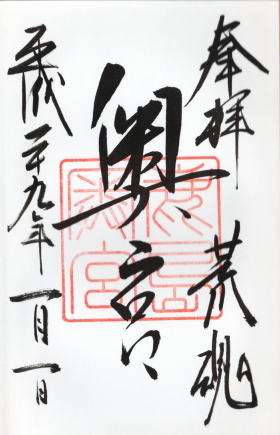 奉拝 荒魂
奥宮
平成二十九年一月一日